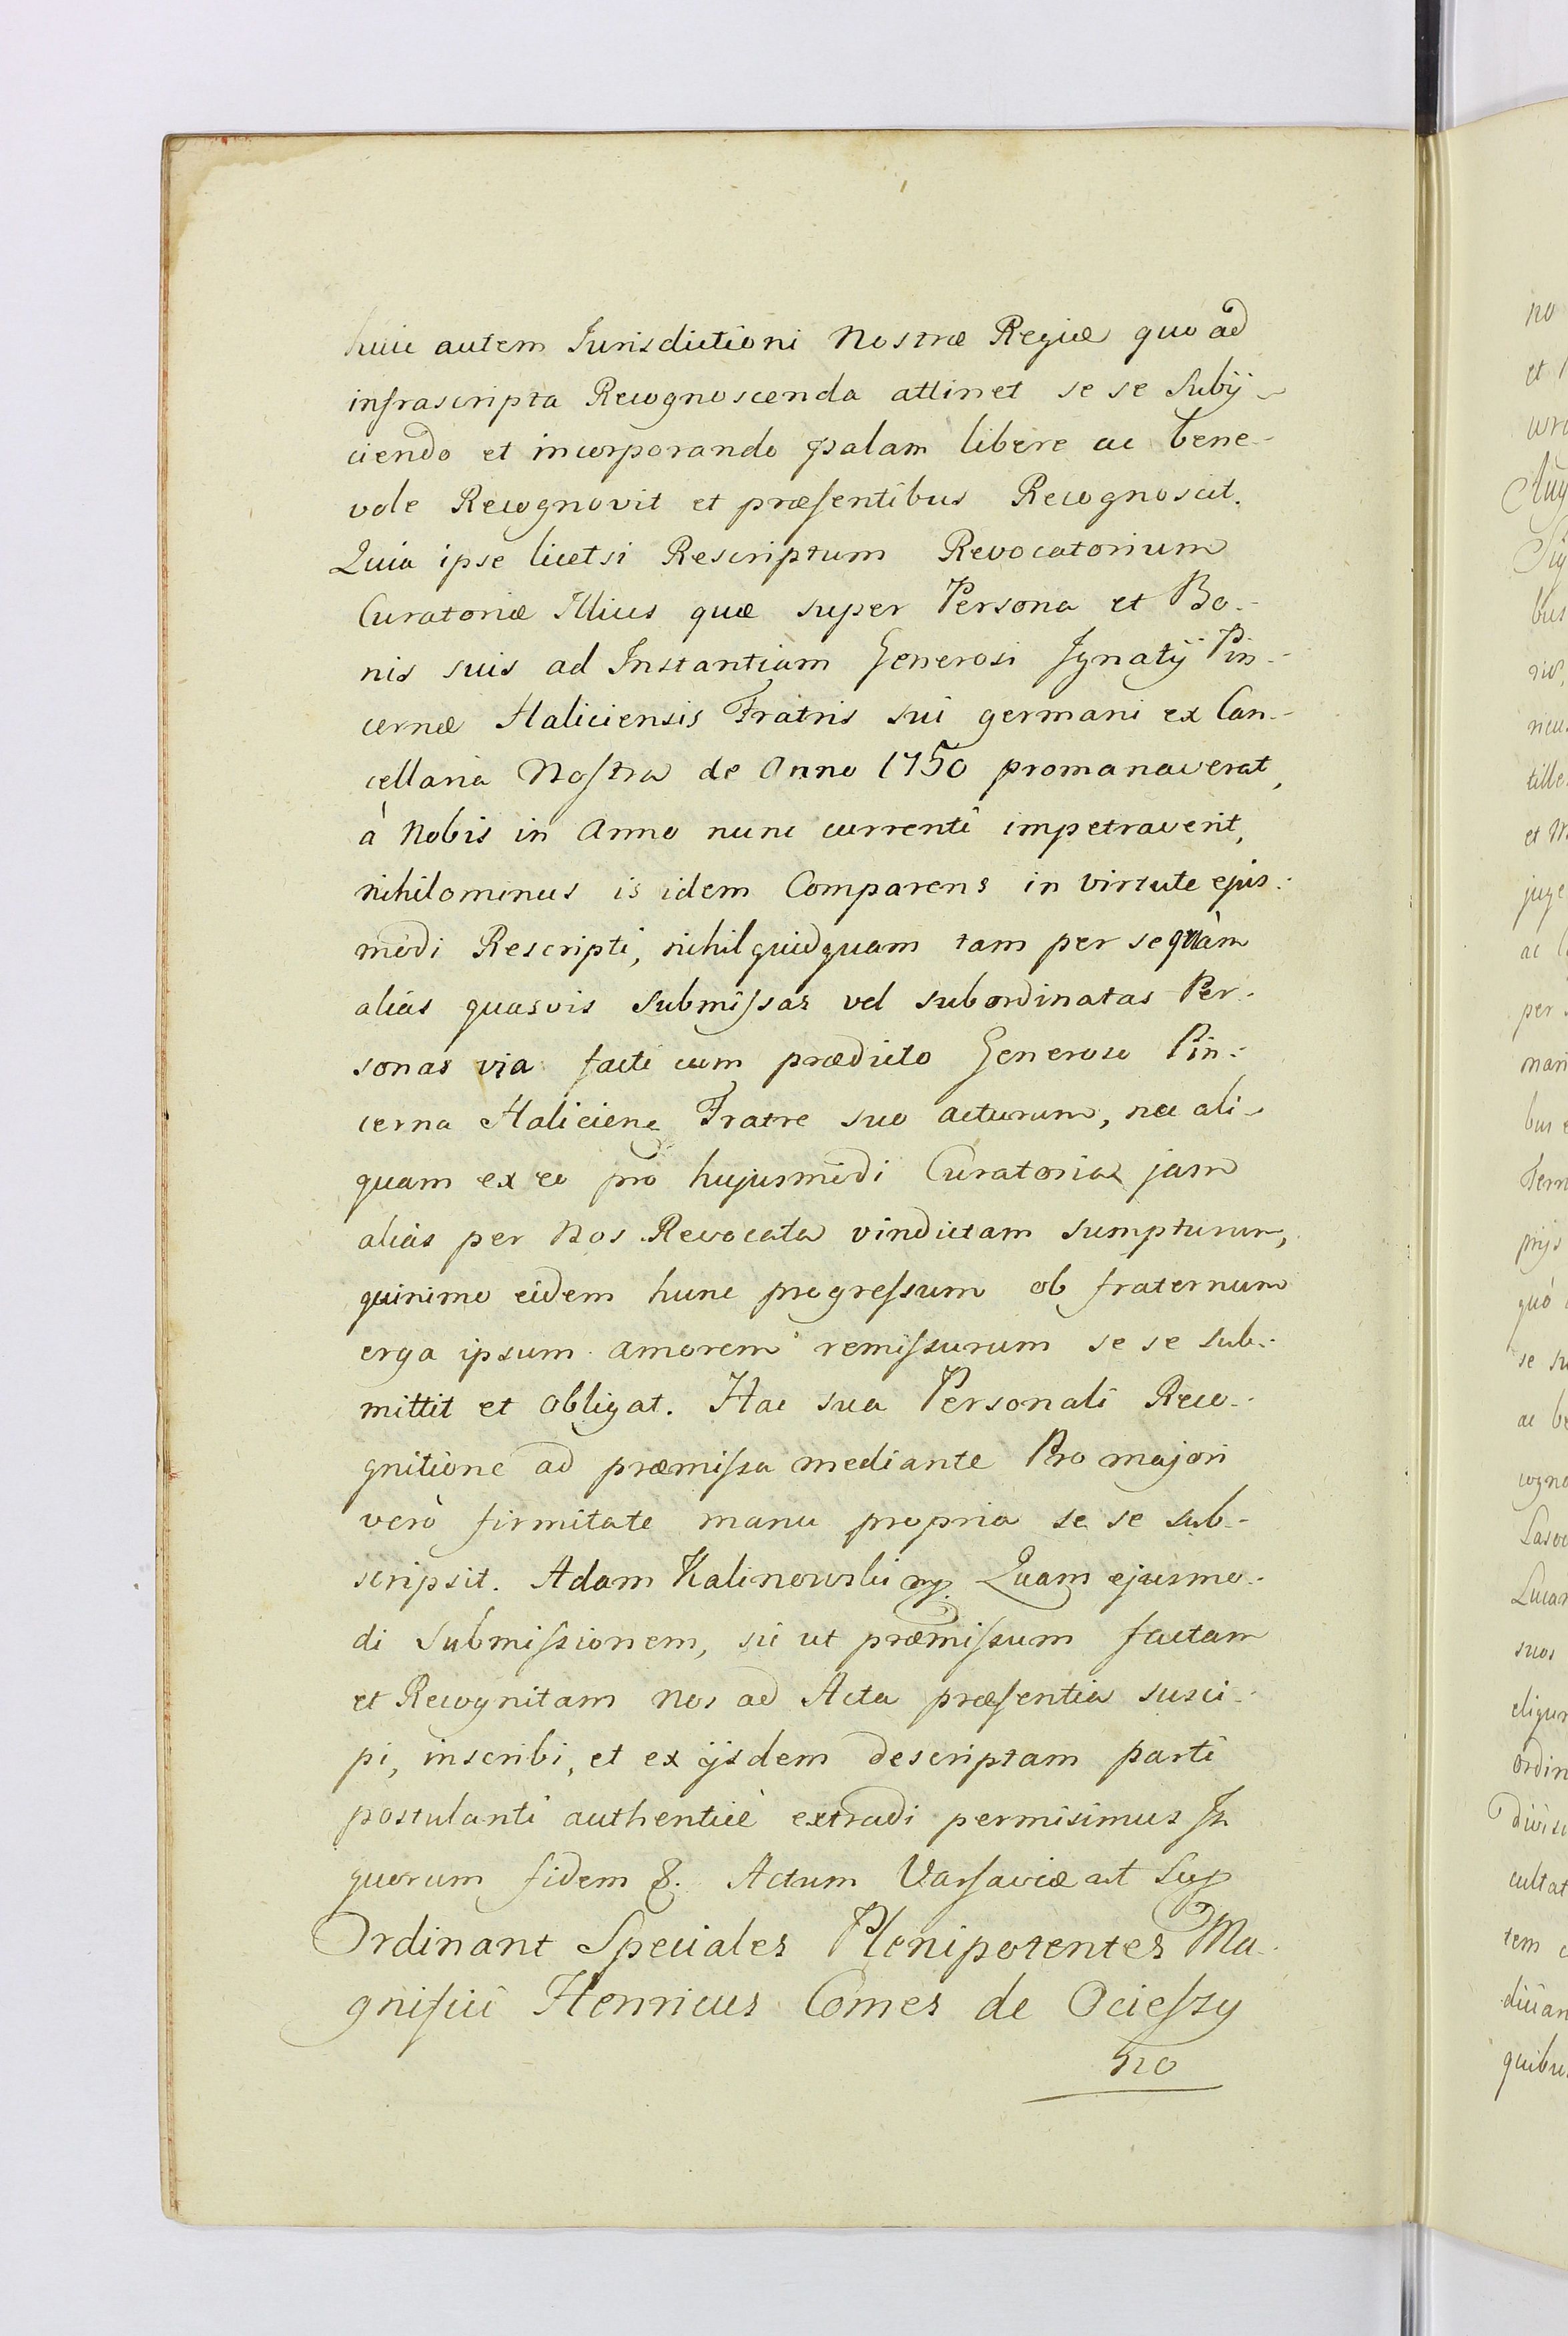 huic autem Jurisdictioni Nostræ Regiæ quo ad
infrascripta Recognoscenda attinet se se Subij-
ciendo et incorporando palam libere ac bene-
vole Recognovit et præsentibus Recognoscit.
Quia ipse licetsi Rescriptum Revocatorium
Curatoriæ Illius quæ super Persona et Bo-
nis suis ad Instantiam Generosi Ignatij Pin-
cernæ Haliciensis Fratris sui germani ex Can-
cellaria Nostra de Anno 1750 promanaverat,
à Nobis in Anno nunc currenti impetraverit,
nihilominus is idem Comparens in virtute ejus-
modi Rescripti, nihil quidquam tam per se quàm
alias quasvis Submissas vel subordinatas Per-
sonas via facti cum prædicto Generoso Pin-
cerna Haliciens Fratre suo acturum, nec ali-
quam ex eo pro hujusmodi Curatoria jam
alias per Nos Revocata vindictam sumpturum,
quinimo eidem hunc progressum ob fraternum
erga ipsum amorem remissurum se se sub-
mittit et obligat. Hac sua Personali Reco-
gnitione ad præmissa mediante Pro majori
verò firmitate manu propria se se sub-
scripsit. Adam Kalinowski mp. Quam ejusmo-
di Submissionem, sic ut præmissum factam
et Recognitam nos ad Acta præsentia susci-
pi, inscribi, et ex ijsdem descriptam parti
postulanti authenticè extradi permisimus In
quorum fidem &. Actum Varsaviæ ut Sup
Ordinant Speciales Plenipotentes Ma-
gnifici Henricus Comes de Ociessy
no
no
et
bus
et
juge
ac
per
mari
bus
prijs
quò
se
ac
cogno
suos
ordin
cultat
tem
quibu